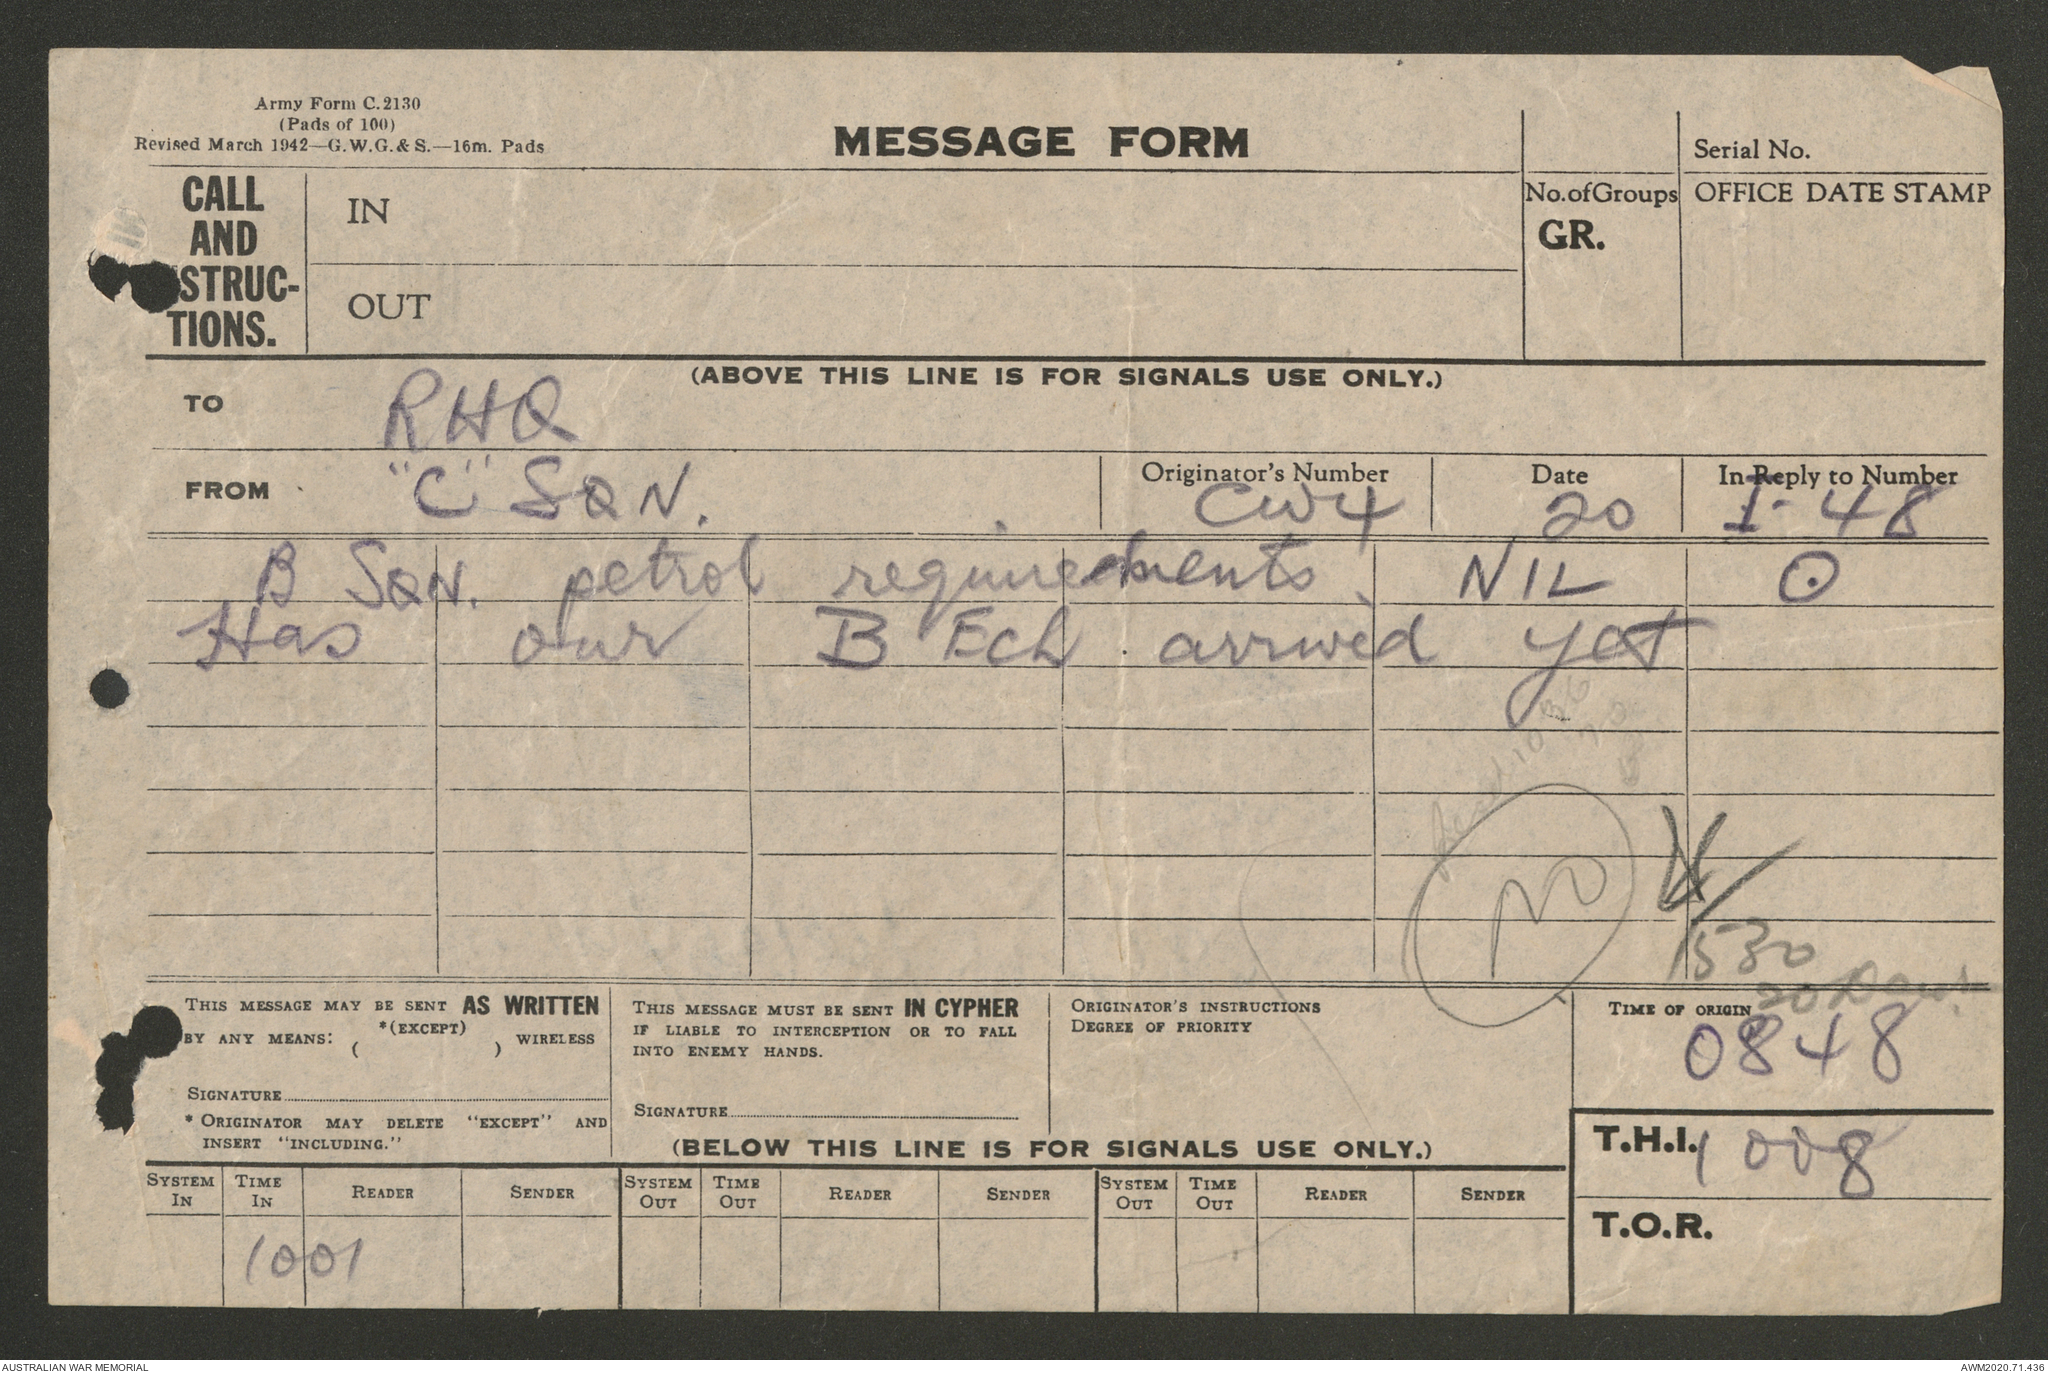 Army Form C.2130
(Pads of 100)
Revised March 1942—G.W.G.& S.—16m. Pads
MESSAGE FORM
Serial No.
CALL
AND
STRUC-
TIONS.
IN
OUT
No. of Groups
GR.
OFFICE DATE STAMP
(ABOVE THIS LINE IS FOR SIGNALS USE ONLY.)
TO RHQ
FROM "C" SQN.
Originator's Number
CW4
Date
20
In Reply to Number
I-48
B SQN. petrol requirements NIL ⊙
Has our B Ech arrived yet
10
20
NO
1530
20
THIS MESSAGE MAY BE SENT AS WRITTEN
BY ANY MEANS: *(EXCEPT) WIRELESS
( )
SIGNATURE
* ORIGINATOR MAY DELETE "EXCEPT" AND
INSERT "INCLUDING."
THIS MESSAGE MUST BE SENT IN CYPHER
IF LIABLE TO INTERCEPTION OR TO FALL
INTO ENEMY HANDS.
SIGNATURE
ORIGINATOR'S INSTRUCTIONS
DEGREE OF PRIORITY
TIME OF ORIGIN
0848
(BELOW THIS LINE IS FOR SIGNALS USE ONLY.)
T.H.I. 1008
T.O.R.
SYSTEM IN TIME IN READER SENDER SYSTEM OUT TIME OUT READER SENDER SYSTEM OUT TIME OUT READER SENDER
1001
AUSTRALIAN WAR MEMORIAL
AWM2020.71.436